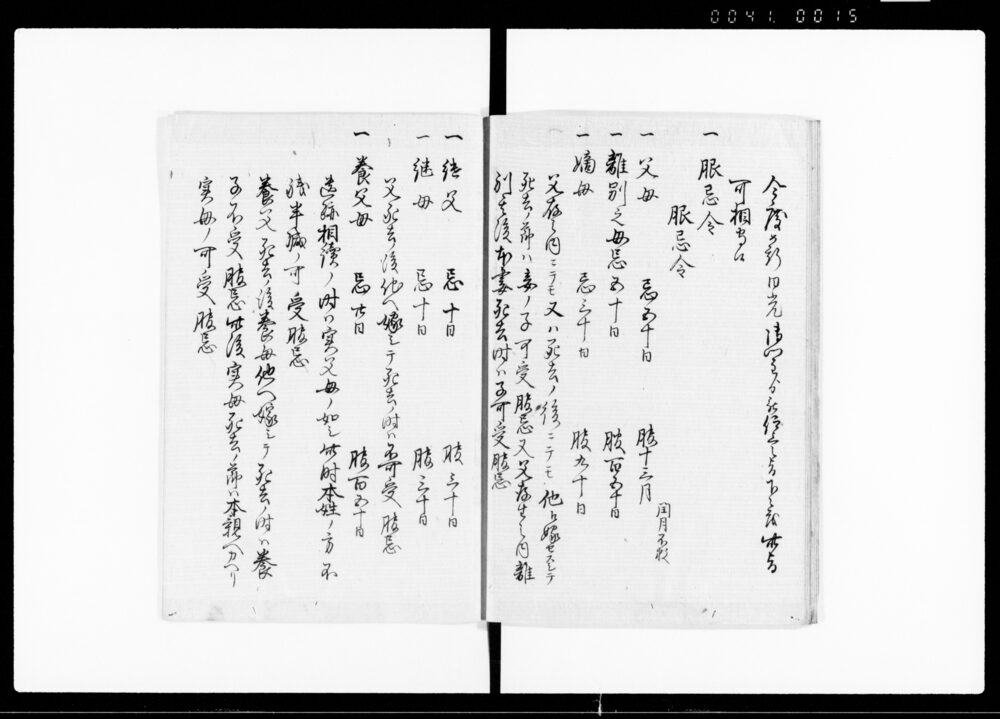 0041.0015
今度
可相守也
一 服忌令
服忌令
一 父母 忌五十日 服十三月 閏月不
一 離別之母忌五十日 服百五十日
一 嫡母 忌三十日 服九十日
父存之内ニテモ又ハ死去ノ後ニテモ他ヘ嫁セスシテ
死去ノ節ハ妾ノ子可受服忌又父存生之内離
別其後本妻死去ノ時ハ子可受服忌
一 継父 忌十日 服三十日
一 継母 忌十日 服三十日
父死去ノ後他ヘ嫁シテ死去ノ時ハ不可受服忌
一 養父母 忌廿日 服百五十日
遺跡相續ノ時ハ実父母ノ如シ此時本姓ノ方不
残半減ノ可受服忌
養父死去ノ後養母他ヘ嫁シテ死去ノ時ハ養
子不受服忌此後実母死去ノ節ハ本親ヘカヘリ
実母ノ可受服忌